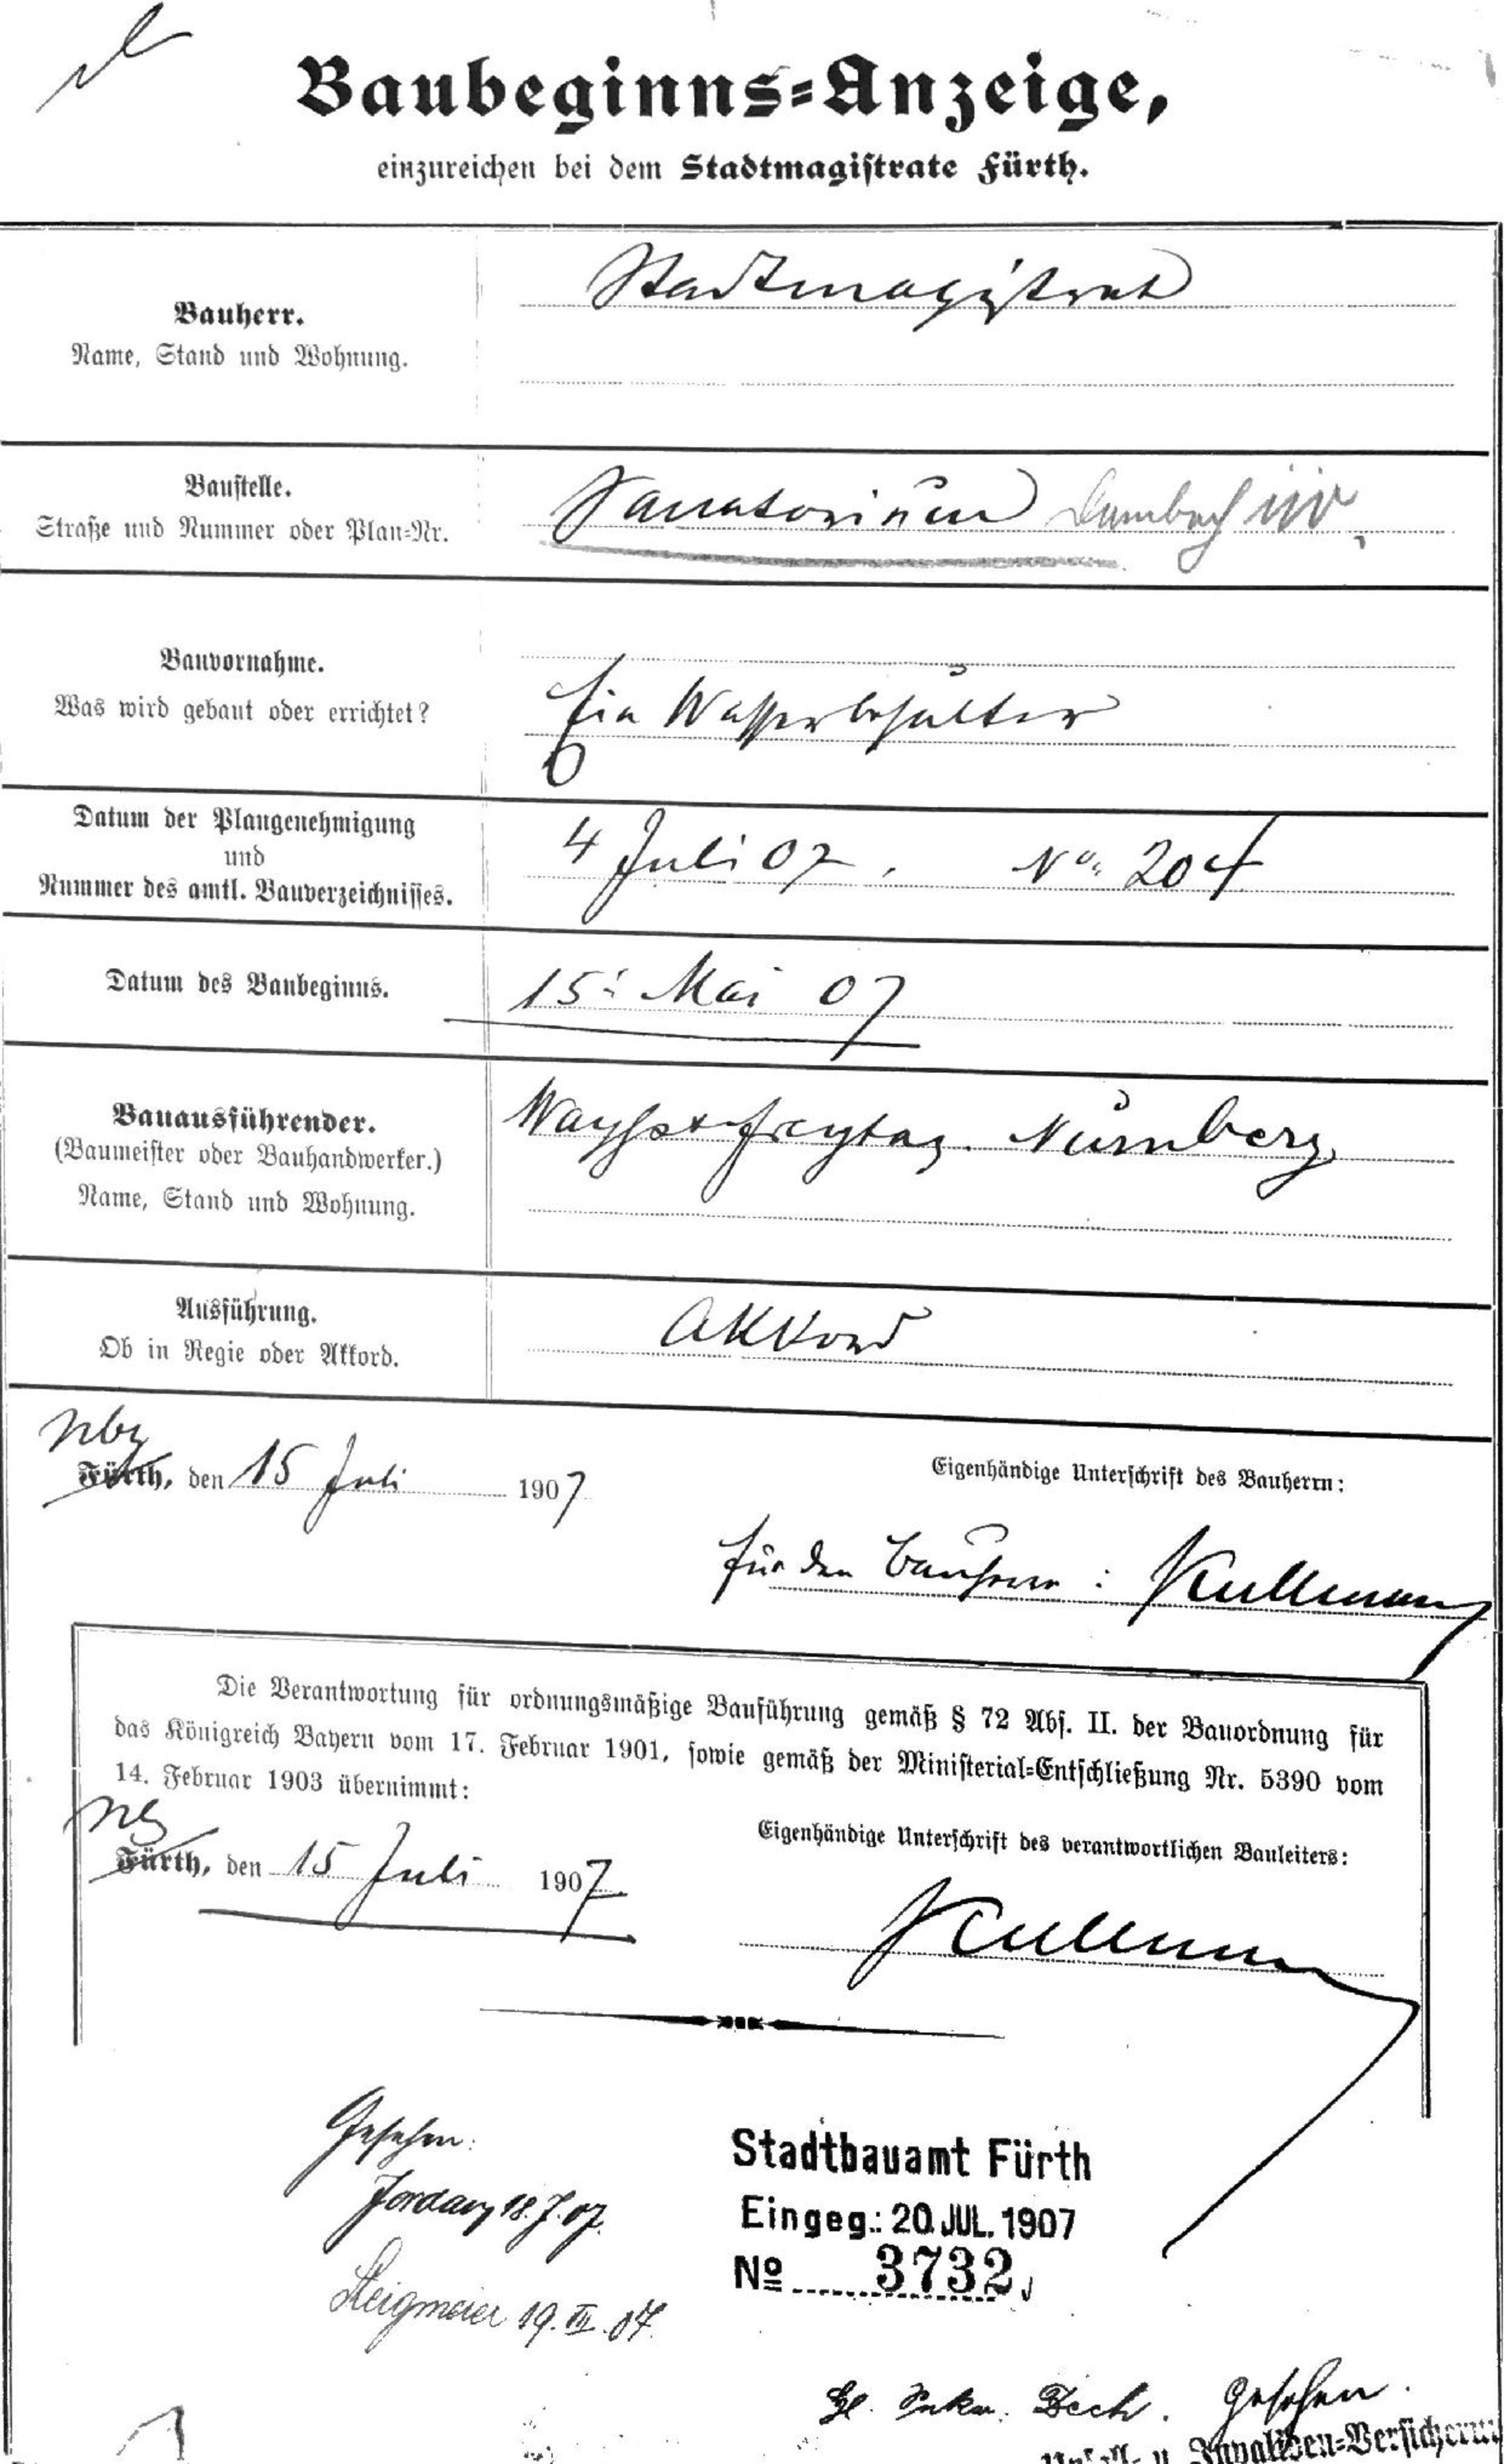 Baubeginns-Anzeige,
einzureichen bei dem Stadtmagistrate Fürth.
Bauherr.
Name, Stand und Wohnung.
Stadtmagistrat
Baustelle.
Straße und Nummer oder Plan-Nr.
Sanatorium Dambach
Bauvornahme.
Was wird gebaut oder errichtet?
Ein Wasserbehälter
Datum der Plangenehmigung
und
Nummer des amtl. Bauverzeichnisses.
4 Juli 07. No. 204
Datum des Baubeginns.
15. Mai 07
Bauausführender.
(Baumeister oder Bauhandwerker.)
Name, Stand und Wohnung.
Wayss & Freytag. Nürnberg
Ausführung.
Ob in Regie oder Akkord.
Akkord
Nbg
Fürth, den 15 Juli 1907
Eigenhändige Unterschrift des Bauherrn:
für den Bauherrn: Kullmann
Die Verantwortung für ordnungsmäßige Bauführung gemäß § 72 Abs. II. der Bauordnung für
das Königreich Bayern vom 17. Februar 1901, sowie gemäß der Ministerial-Entschließung Nr. 5390 vom
14. Februar 1903 übernimmt:
Nbg
Fürth, den 15 Juli 1907
Eigenhändige Unterschrift des verantwortlichen Bauleiters:
Kullmann
Gesehen:
Jordan 18.7.07.
Steigmeier 19.VII.07.
Stadtbauamt Fürth
Eingeg.: 20. JUL. 1907
No 3732
Gesehen.
Unfall- u. Invaliden-Versicherun